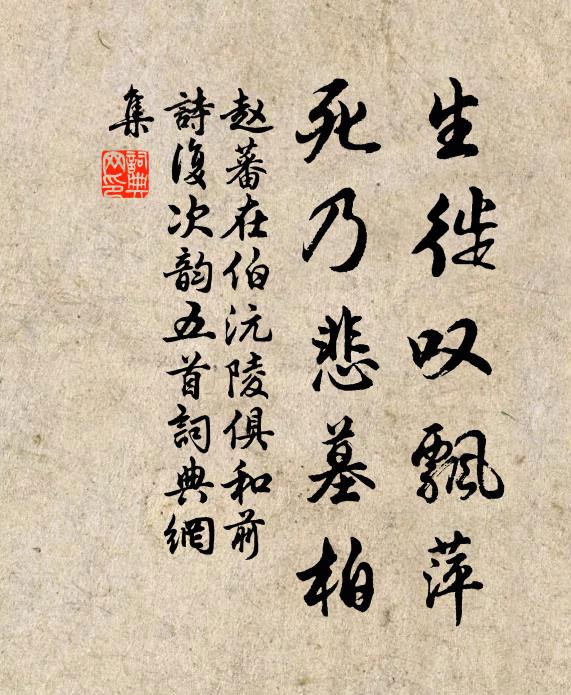 生徙叹飘萍
死乃悲墓柏
赵蕃在伯沅陵俱和前
詩復次韵五首詞典網
集
詞典網印